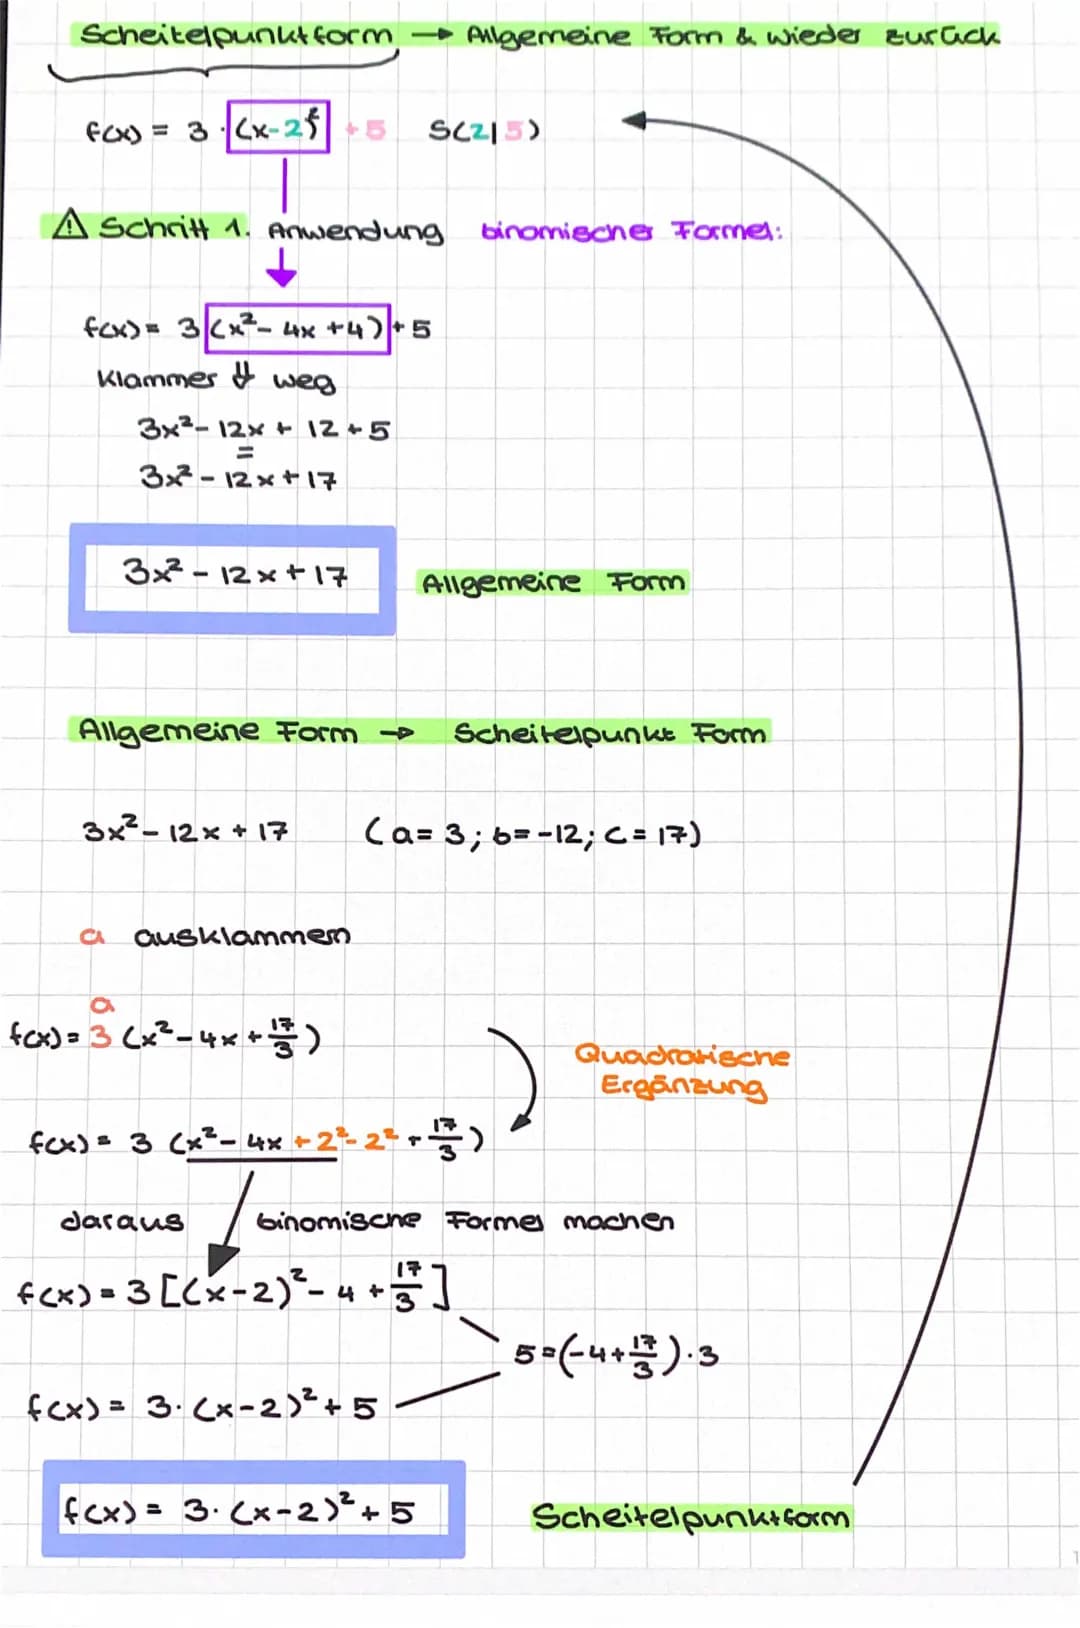 Scheitelpunktform → Allgemeine Form & wieder zurück
f(x) = 3 · (x-2)² + 5 S(2|5)
⚠ Schritt 1. Anwendung binomischer Formel:
f(x) = 3 (x² - 4x + 4) + 5
Klammer ⇓ weg
3x² - 12x + 12 + 5
=
3x² - 12x + 17
3x² - 12x + 17 Allgemeine Form
Allgemeine Form → Scheitelpunkt Form
3x² - 12x + 17 (a = 3; b = -12; c = 17)
a ausklammern
a
f(x) = 3 (x² - 4x + 17/3)
Quadratische
Ergänzung
f(x) = 3 (x² - 4x + 2² - 2² + 17/3)
daraus binomische Formel machen
f(x) = 3 [(x-2)² - 4 + 17/3]
5 = (-4 + 17/3) · 3
f(x) = 3 · (x-2)² + 5
f(x) = 3 · (x-2)² + 5 Scheitelpunktform